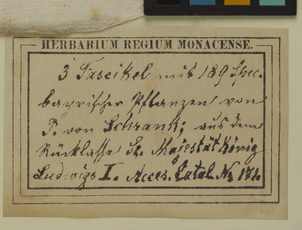 HERBARIUM REGIUM MONACENSE.
3 Fascikel mit 189 Spec.
bayrischer Pflanzen von
P. von Schrank; aus dem
Rücklasse Sr. Majestät König
Ludwigs I. Acces. Catal. No